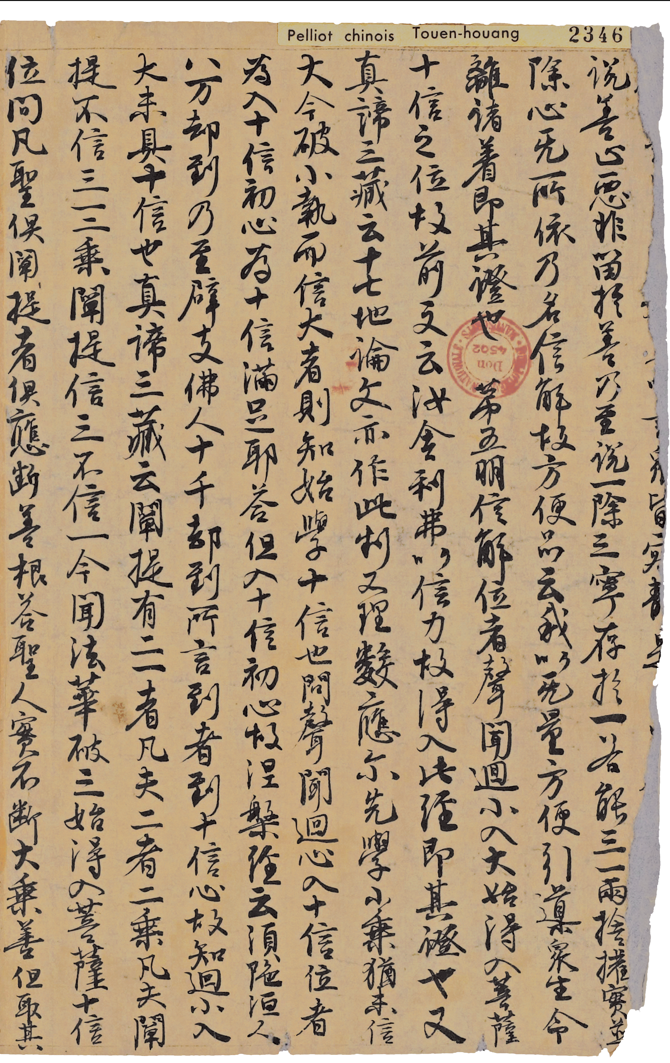 Pelliot chinois Touen-houang 2346
説善止惡非留於善乃至説一除三寧存於一若能三一兩捨權實並
除心无所依乃名信解故方便品云我以无量方便引導衆生令
離諸著即其證也 第五明信解位者聲聞迴小入大始得入菩薩
十信之位故前文云汝舍利弗以信力故得入此經即其證也又
真諦三藏云十七地論文亦作此判又理數應尒先學小乘猶未信
大今破小執而信大者則知始學十信也問聲聞迴心入十信位者
為入十信初心為十信滿足耶荅但入十信初心故涅槃經云須陁洹人
八万劫到乃至辟支佛人十千劫到所言到者到十信心故知迴小入
大未具十信也真諦三藏云闡提有二一者凡夫二者二乘凡夫闡
提不信三一二乘闡提信三不信一今聞法華破三始得入菩薩十信
位問凡聖俱闡提者俱應断善根荅聖人實不断大乘善但取其